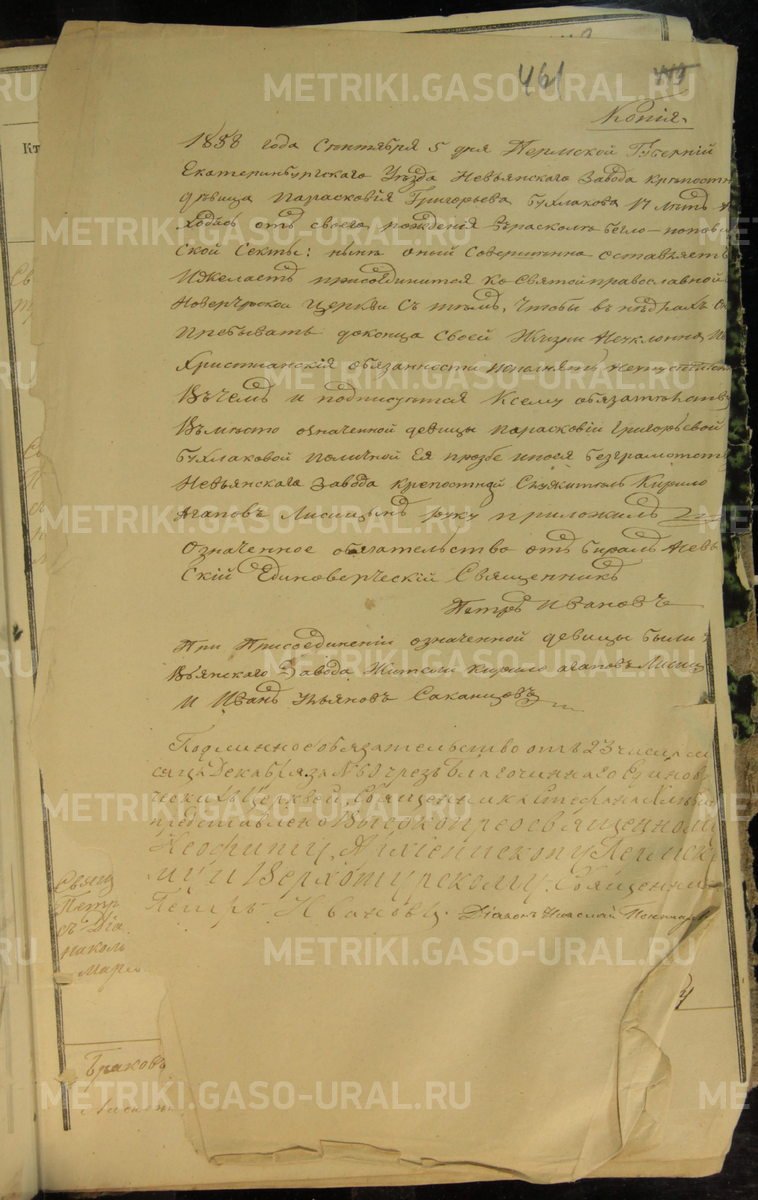 461
Копія
1858 года Сентября 5 дня Пермской Губерній
Екатеринбургскаго Уѣзда Невьянскаго Завода крѣпостн
дѣвица Парасковія Григорьева Бухлакова 17 лѣтъ
ходясь отъ своего рожденія Врасколѣ бѣгло-попов
ской Секты: нынѣ оный Совершенно оставляетъ
Ижелаетъ присоединится ко Святой православной
новерческой Церкви Съ тѣмъ, чтобы въ нѣдрахъ
Прѣбывать доконца Своей Жизни Неуклонно
Христианскія обязанности исполнять
Въчемъ и подписуется Ксему обязательству
Вмѣсто означенной девицы Парасковіи Григорьевой
Бухлаковой поличной Ея прозбе
Невьянскаго Завода крепостной Служитель Кирило
Агаповъ Лисицынъ руку приложилъ
Означенное обязательство отъ биралъ Невь
скій Единоверческій Священникъ
Петръ Ивановъ
При Присоединеніи означенной девицы были
Вьянскаго Завода Жители Кирило Агаповъ Лисиц
И Иванъ Ульяновъ
Подлинное обязательство отъ 23 числа м
сяца Декабря за № чрезъ Благочиннаго Единов
ческихъ Церквей, Священника Стефана
представлено Высокопреосвященному
Неофиту, Архіепископу Пермск
му и Верхотурскому, Священни
Петръ Ивановъ. Діаконъ Николай
Свящ
Петръ
съ Діа
николь
Марк
4
Браковъ